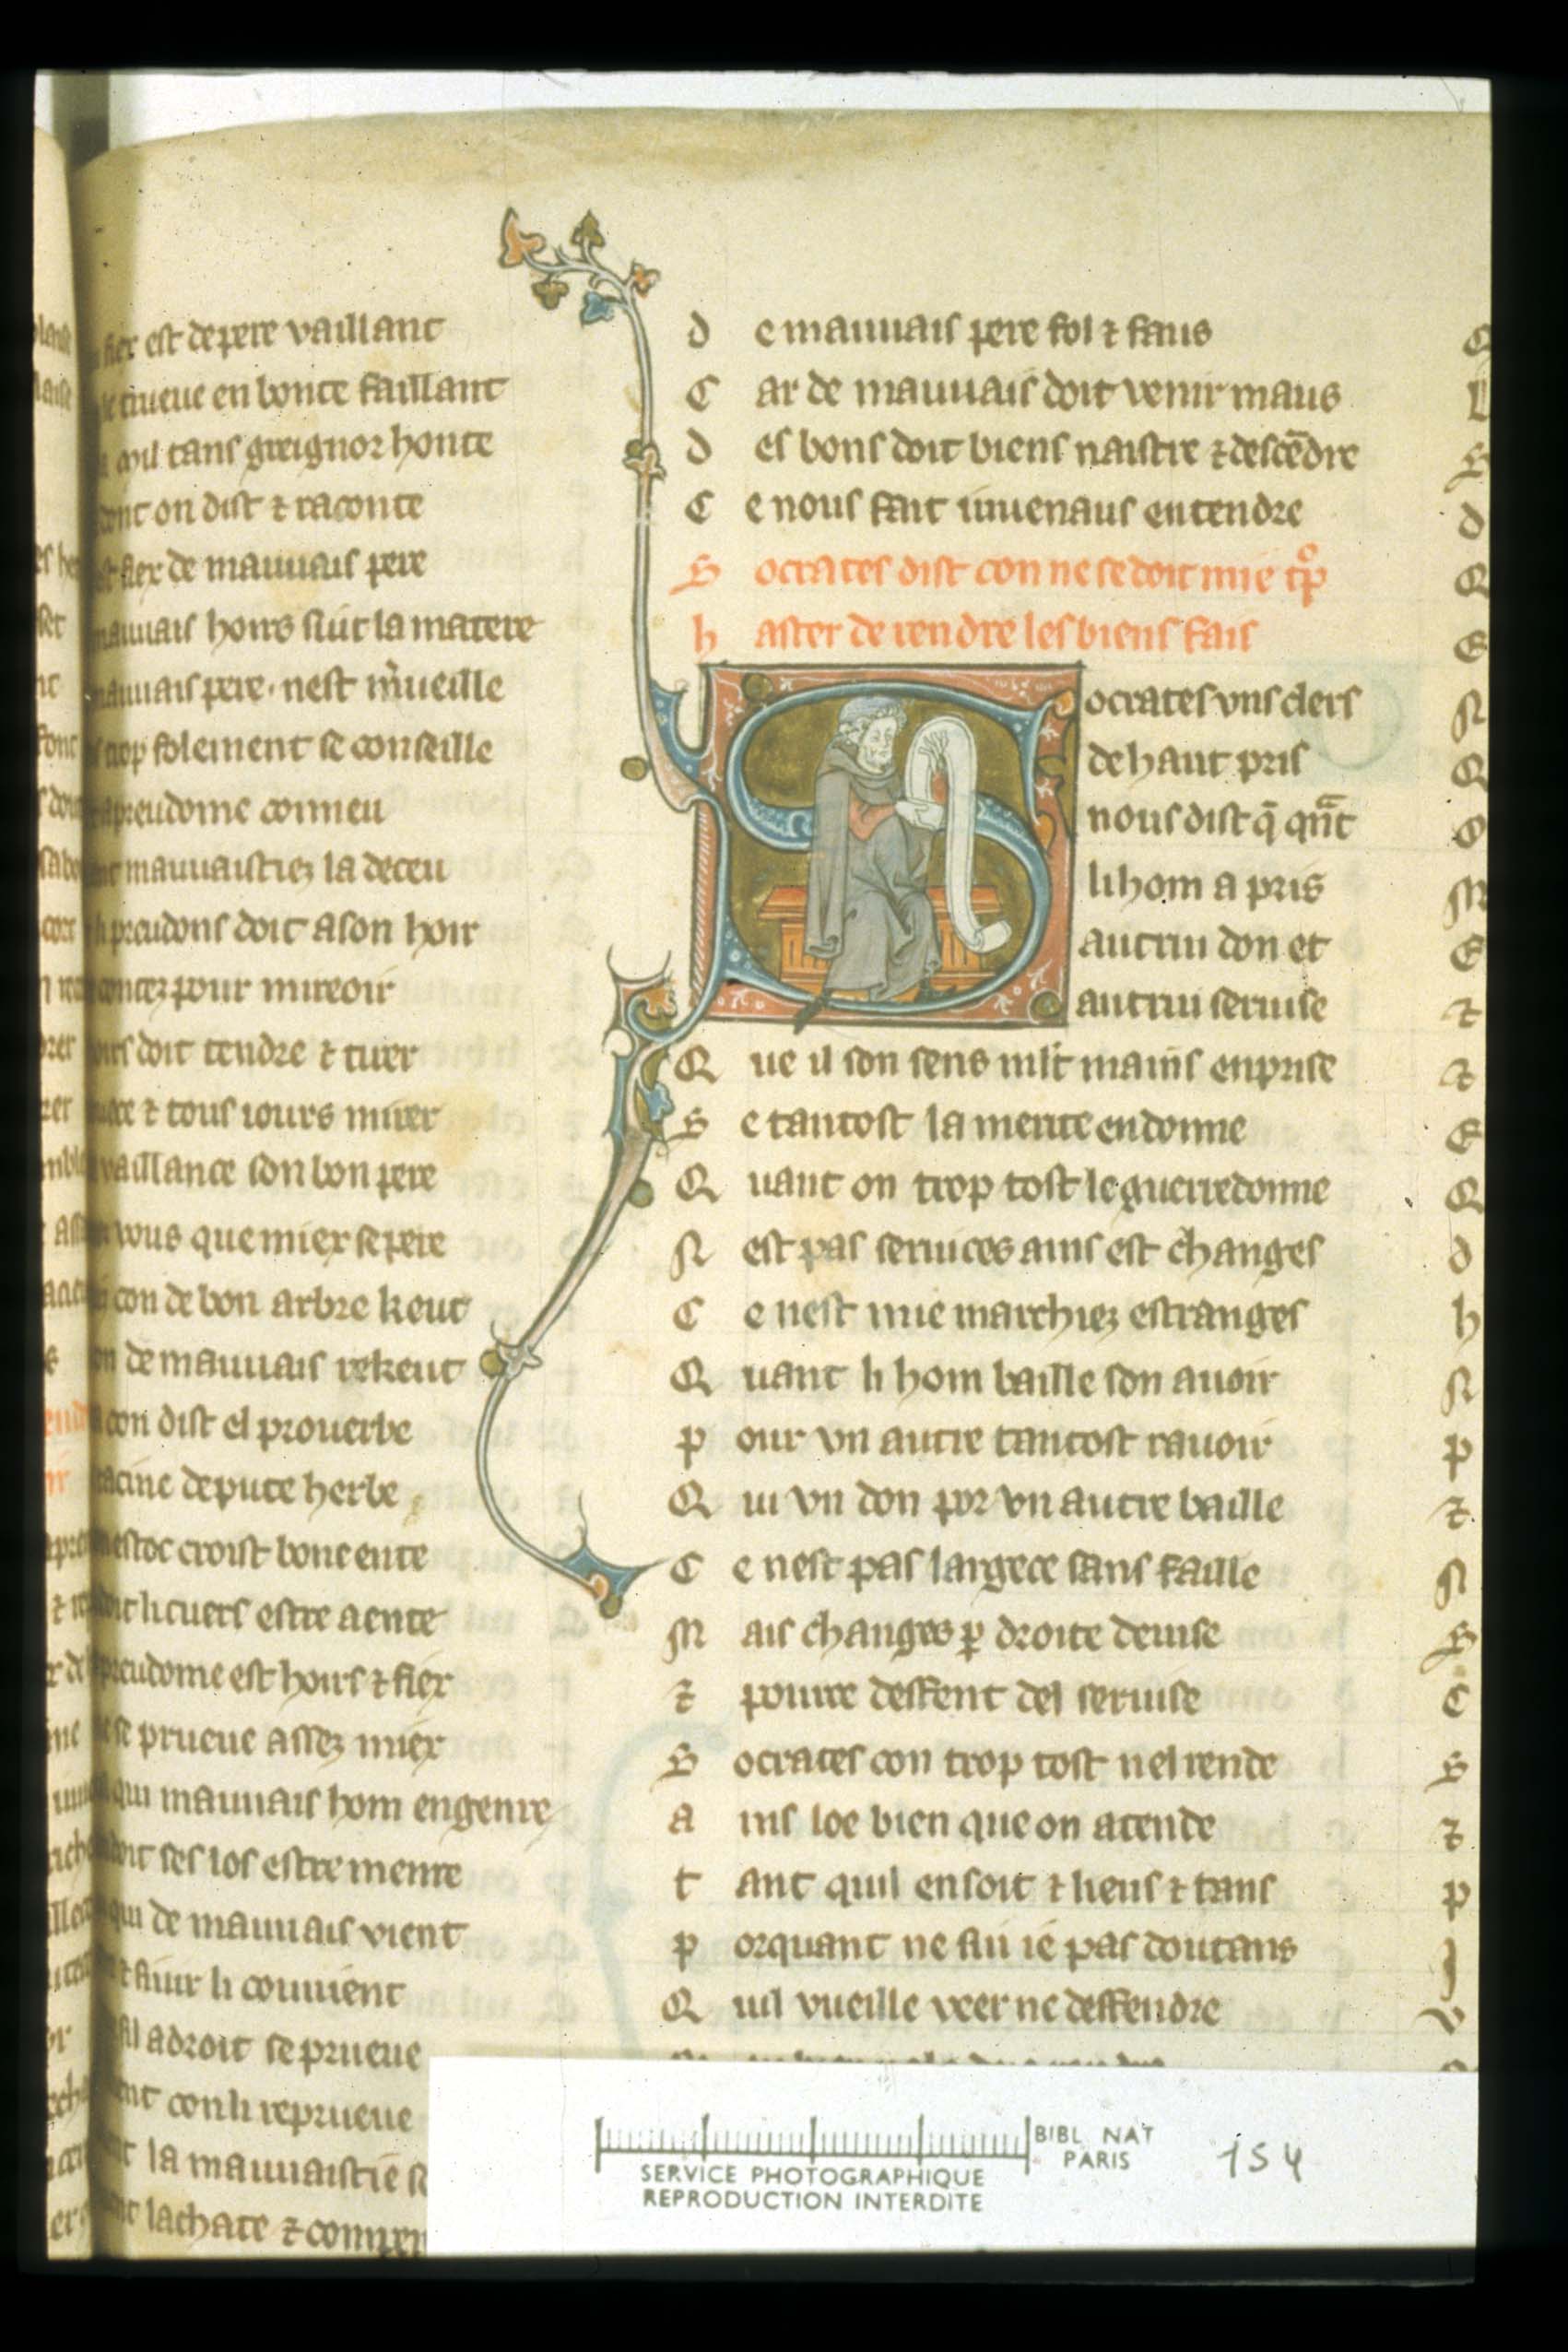 fiex est de pere vaillant
en bonte faillant
tans greignor honte
on dist ⁊ raconte
fiex de mauuais pere
mauuais hoirs siut la matere
mauuais pere · nest mueille
trop folement se conseille
preudome conneu
mauuaistiez la deceu
preudons doit a son hoir
pour mireoir
doit tendre ⁊ tirer
⁊ tous iours mirer
vaillance son bon pere
vous que miex se pere
con de bon arbre keut
de mauuais rekeut
con dist el prouerbe
racine de pute herbe
estoc croist bone ente
li cuers estre a ente
preudome est hoirs ⁊ fiex
se prueue assez miex
qui mauuais hom engenre
ses los estre menre
qui de mauuais vient
siuir li couuient
a droit se prueue
con li reprueue
la mauuaistie
lachate ⁊ conper
d e mauuais pere fol ⁊ faus
C ar de mauuais doit venir maus
d es bons doit biens naistre ⁊ descēdre
C e nous fait iuuenaus entendre
S ocrates dist con ne se doit mie tͦp
h aster de rendre les biens fais
ocrates vns clers
de haut pris
nous dist q̄ qn̄t
li hom a pris
autrui don et
autrui seruise
Q ue il son sens mlt mains en prise
S e tantost la merite en donne
Q uant on trop tost le guerredonne
N est pas seruices ains est changes
C e nest mie marchiez estranges
Q uant li hom baille son auoir
p our vn autre tantost rauoir
Q ui vn don por vn autre baille
C e nest pas largece sans faille
M ais changes ꝑ droite deuise
⁊ pource deffent del seruise
S ocrates con trop tost nel rende
a ins loe bien que on atende
t ant quil en soit ⁊ lieus ⁊ tans
p orquant ne sui ie pas doutans
Q uil vueille veer ne deffendre
BIBL NAT
PARIS
SERVICE PHOTOGRAPHIQUE
REPRODUCTION INTERDITE
154